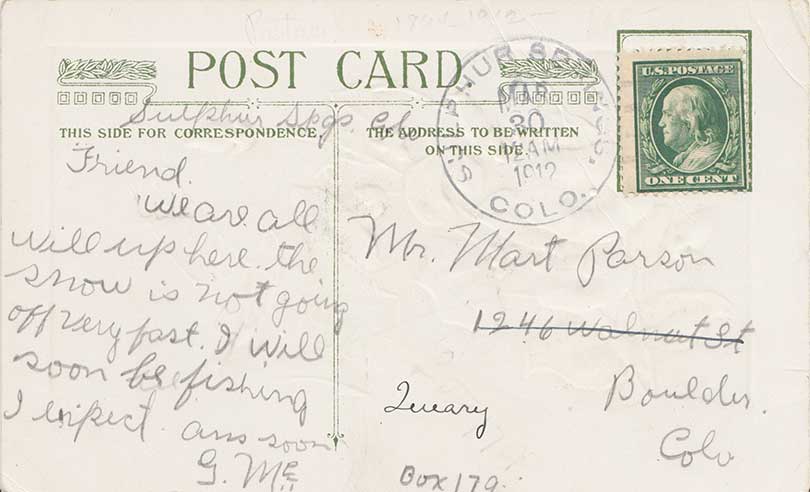 POST CARD
Sulphur Spgs. Colo
THIS SIDE FOR CORRESPONDENCE.
THE ADDRESS TO BE WRITTEN
ON THIS SIDE.
SULPHUR SPRINGS,
30
12 AM
1912
COLO.
U.S. POSTAGE
ONE CENT
Friend.
We are all
will up here. the
snow is not going
off very fast. I will
soon be fishing
I expect ans soon
G. Mc
Mr. Mart Parson
1246 Walnut St
Boulder.
Colo
Box 179.